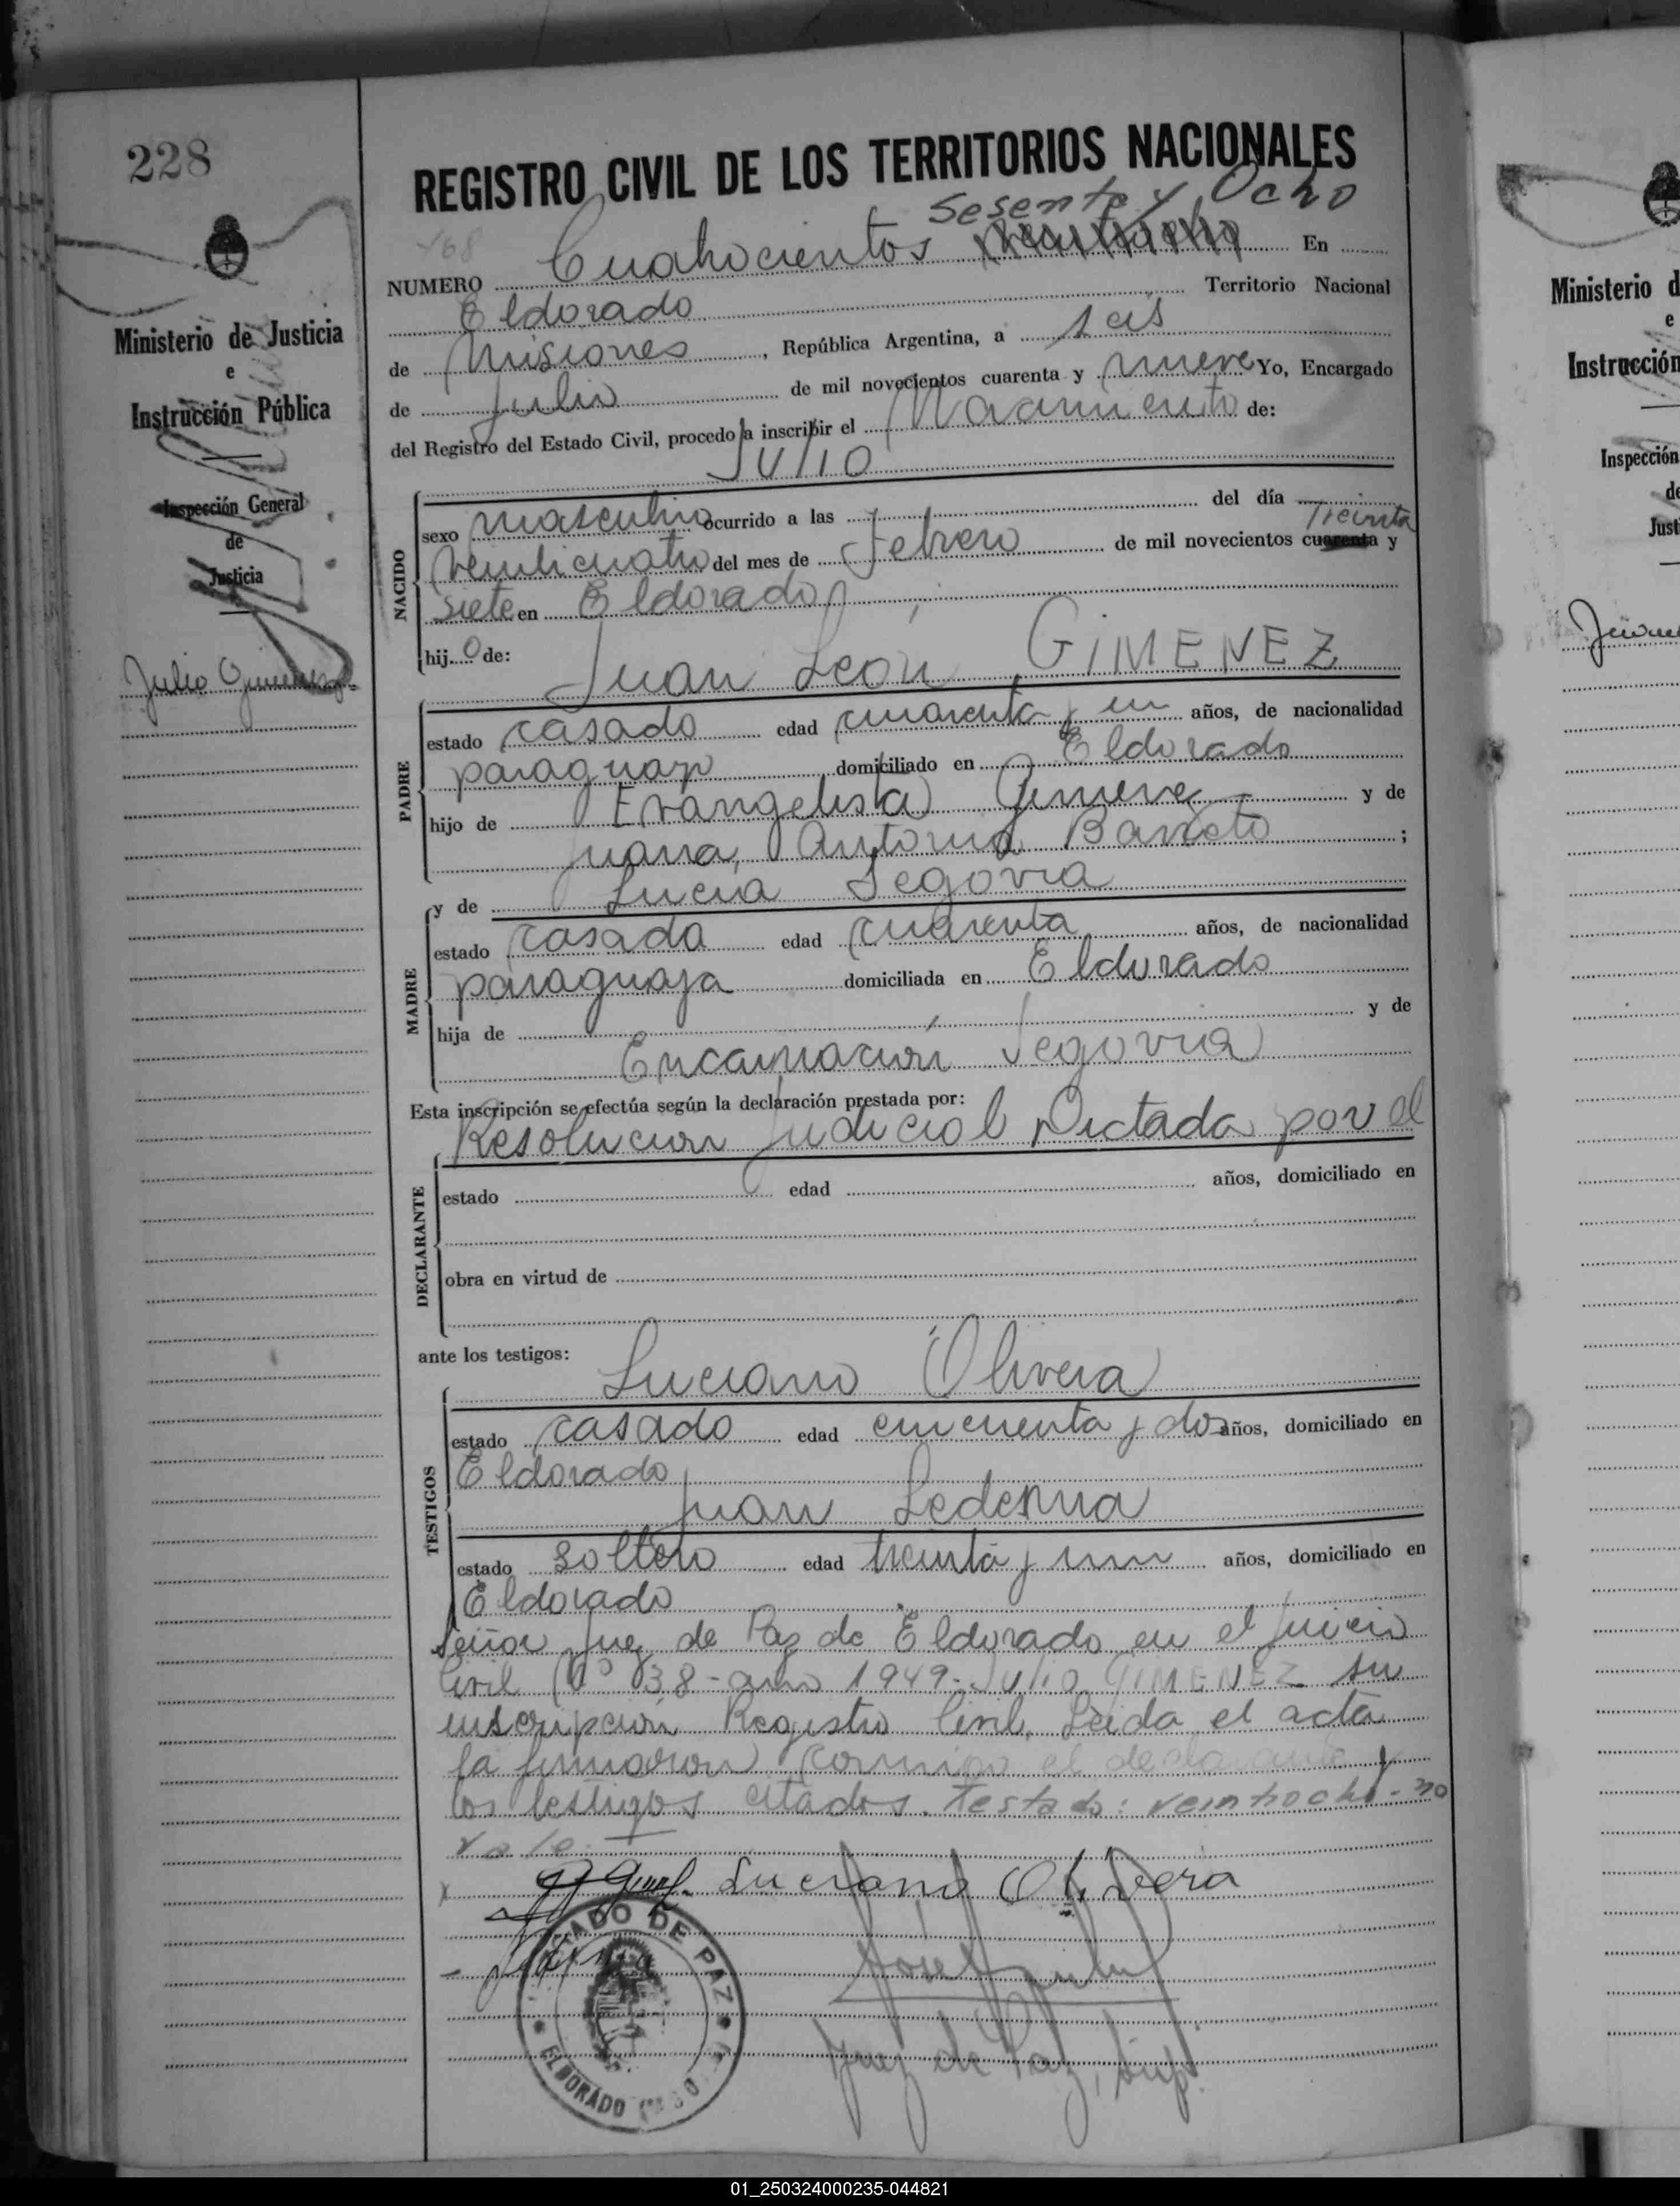 228
REGISTRO CIVIL DE LOS TERRITORIOS NACIONALES
Sesenta y Ocho
468
NUMERO Cuatrocientos En
Eldorado Territorio Nacional
de Misiones, República Argentina, a seis
de Julio de mil novecientos cuarenta y nueve Yo, Encargado
del Registro del Estado Civil, procedo a inscribir el Nacimiento de:
JULIO
NACIDO
sexo masculino ocurrido a las del día
Treinta
veinticuatro del mes de Febrero de mil novecientos cuarenta y
siete en Eldorado
hijo de: Juan Leon GIMENEZ
PADRE
estado casado edad cuarenta y un años, de nacionalidad
paraguayo domiciliado en Eldorado
hijo de Evangelista Gimenez y de
Juana Antonia Barreto;
MADRE
y de Lucia Segovia
estado casada edad cuarenta años, de nacionalidad
paraguaya domiciliada en Eldorado
hija de y de
Encarnación Segovia
Esta inscripción se efectúa según la declaración prestada por:
Resolucion Judicial Dictada por el
DECLARANTE
estado edad años, domiciliado en
obra en virtud de
ante los testigos:
Luciano Olivera
TESTIGOS
estado casado edad cincuenta y dos años, domiciliado en
Eldorado
Juan Ledesma
estado soltero edad treinta y un años, domiciliado en
Eldorado
Señor Juez de Paz de Eldorado en el Juicio
Civil Nº 38 - año 1949 - JULIO GIMENEZ su
inscripción Registro Civil. Leida el acta
la firmaron conmigo el declarante y
los testigos citados. Testado: veintiocho - no
vale
Luciano Olivera
Juez de Paz, Sup.
JUZGADO DE PAZ
ELDORADO
Ministerio de Justicia
e
Instrucción Pública
Inspección General
de
Justicia
Julio Gimenez
Ministerio d
e
Instrucción
Inspección
de
Justi
01_250324000235-044821